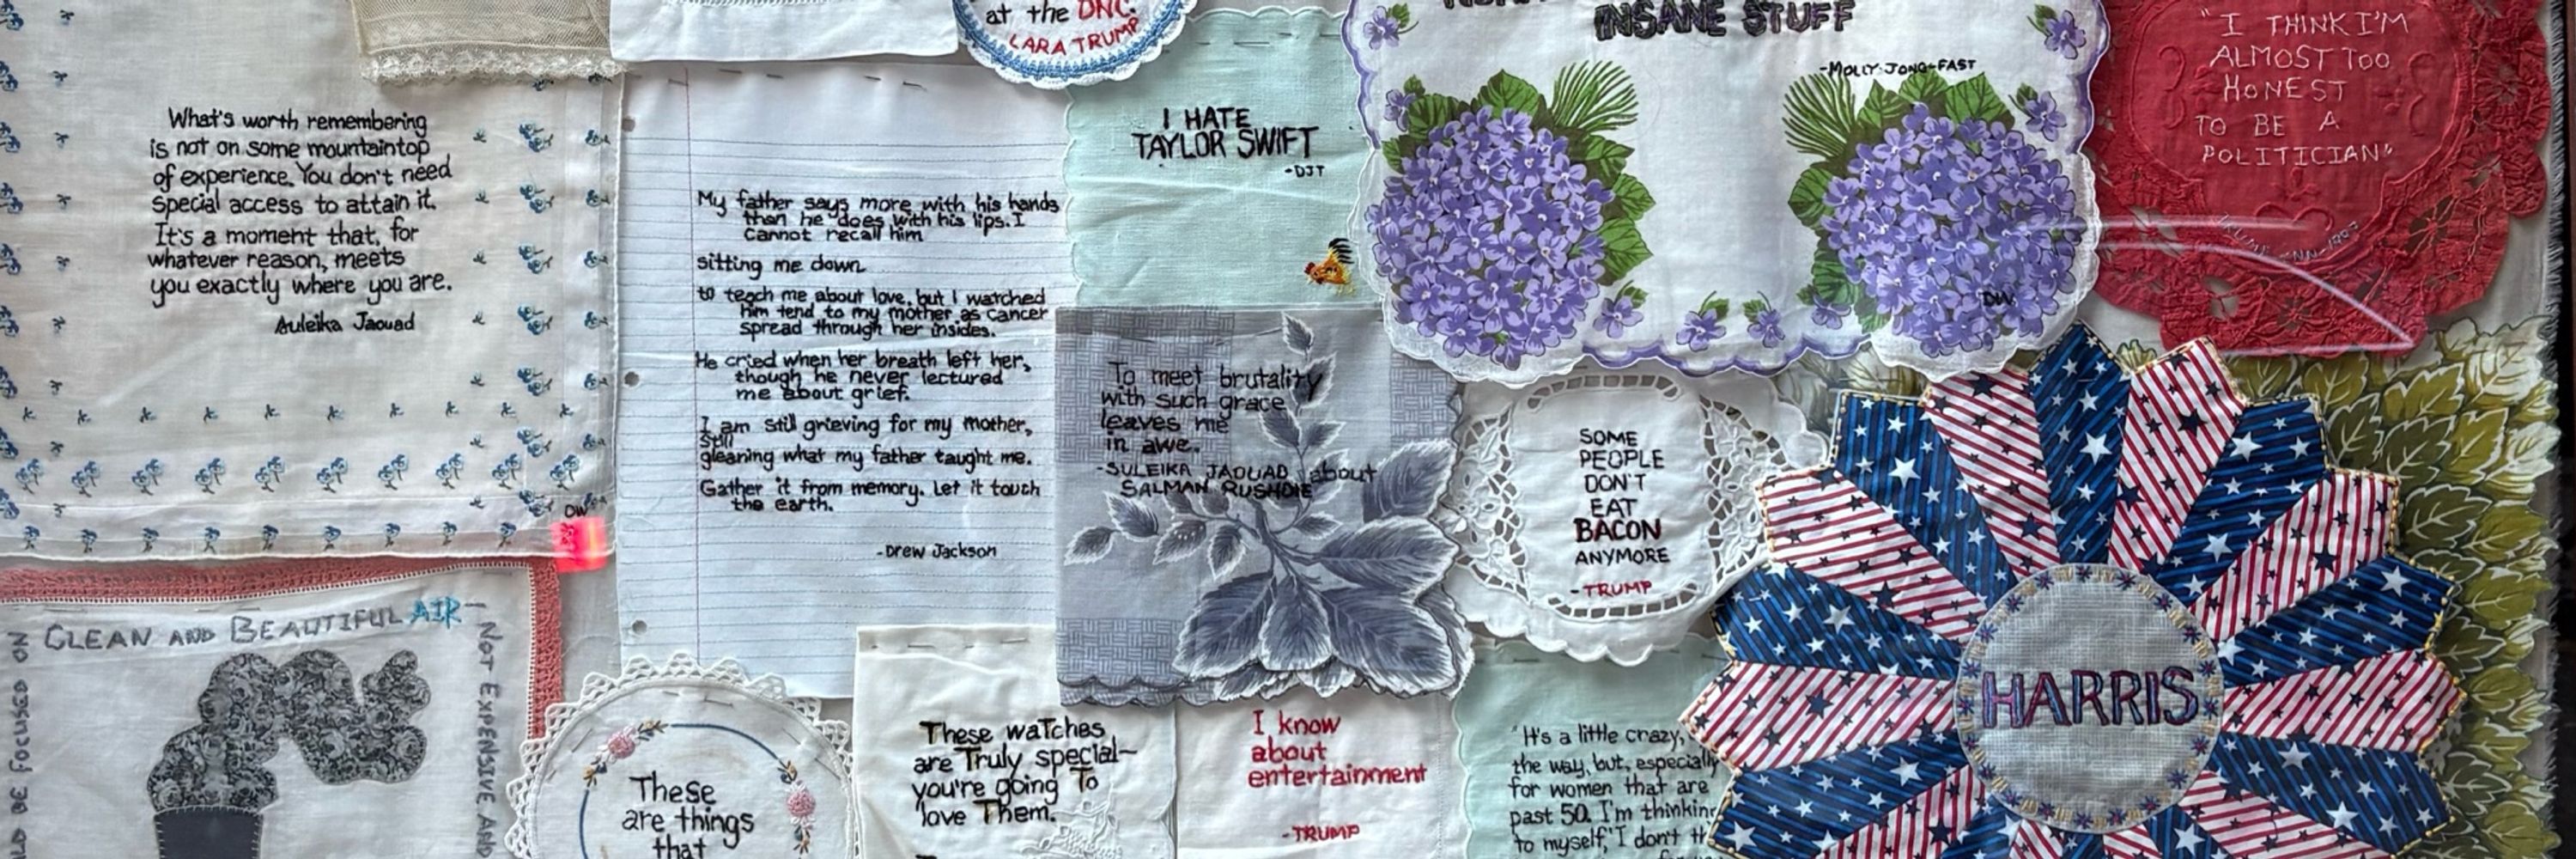 What's worth remembering
is not on some mountaintop
of experience. You don't need
special access to attain it.
It's a moment that, for
whatever reason, meets
you exactly where you are.
Suleika Jaouad
DW
at the DNC.
LARA TRUMP
My father says more with his hands
than he does with his lips. I
Cannot recall him
sitting me down
to teach me about love, but I watched
him tend to my mother as cancer
spread through her insides.
He cried when her breath left her,
though he never lectured
me about grief.
I am still grieving for my mother,
Still
gleaning what my father taught me.
Gather it from memory. Let it touch
the earth.
-Drew Jackson
I HATE
TAYLOR SWIFT
-DJT
INSANE STUFF
-MOLLY JONG-FAST
DW
"I THINK I'M
ALMOST TOO
HONEST
TO BE A
POLITICIAN"
To meet brutality
with such grace
leaves me
in awe.
-SULEIKA JAOUAD about
SALMAN RUSHDIE
SOME
PEOPLE
DON'T
EAT
BACON
ANYMORE
-TRUMP
HARRIS
CLEAN AND BEAUTIFUL AIR
NOT EXPENSIVE AND
BE FOCUSED ON
These
are things
that
These watches
are Truly special~
you're going To
love Them.
I know
about
entertainment
-TRUMP
"It's a little crazy,
the way, but, especially
for women that are
past 50. I'm thinking
to myself, 'I don't th